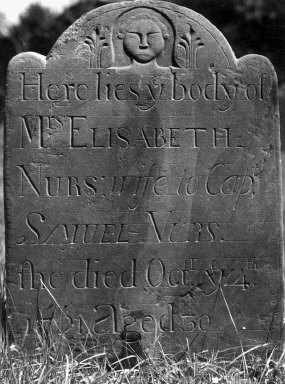 Here lies yͤ body of
Mʳˢ ELISABETH
NURS: wife to Capᵗ
SAMUEL NURS.
she died Octʳ yͤ 4ᵗʰ
Aged 30